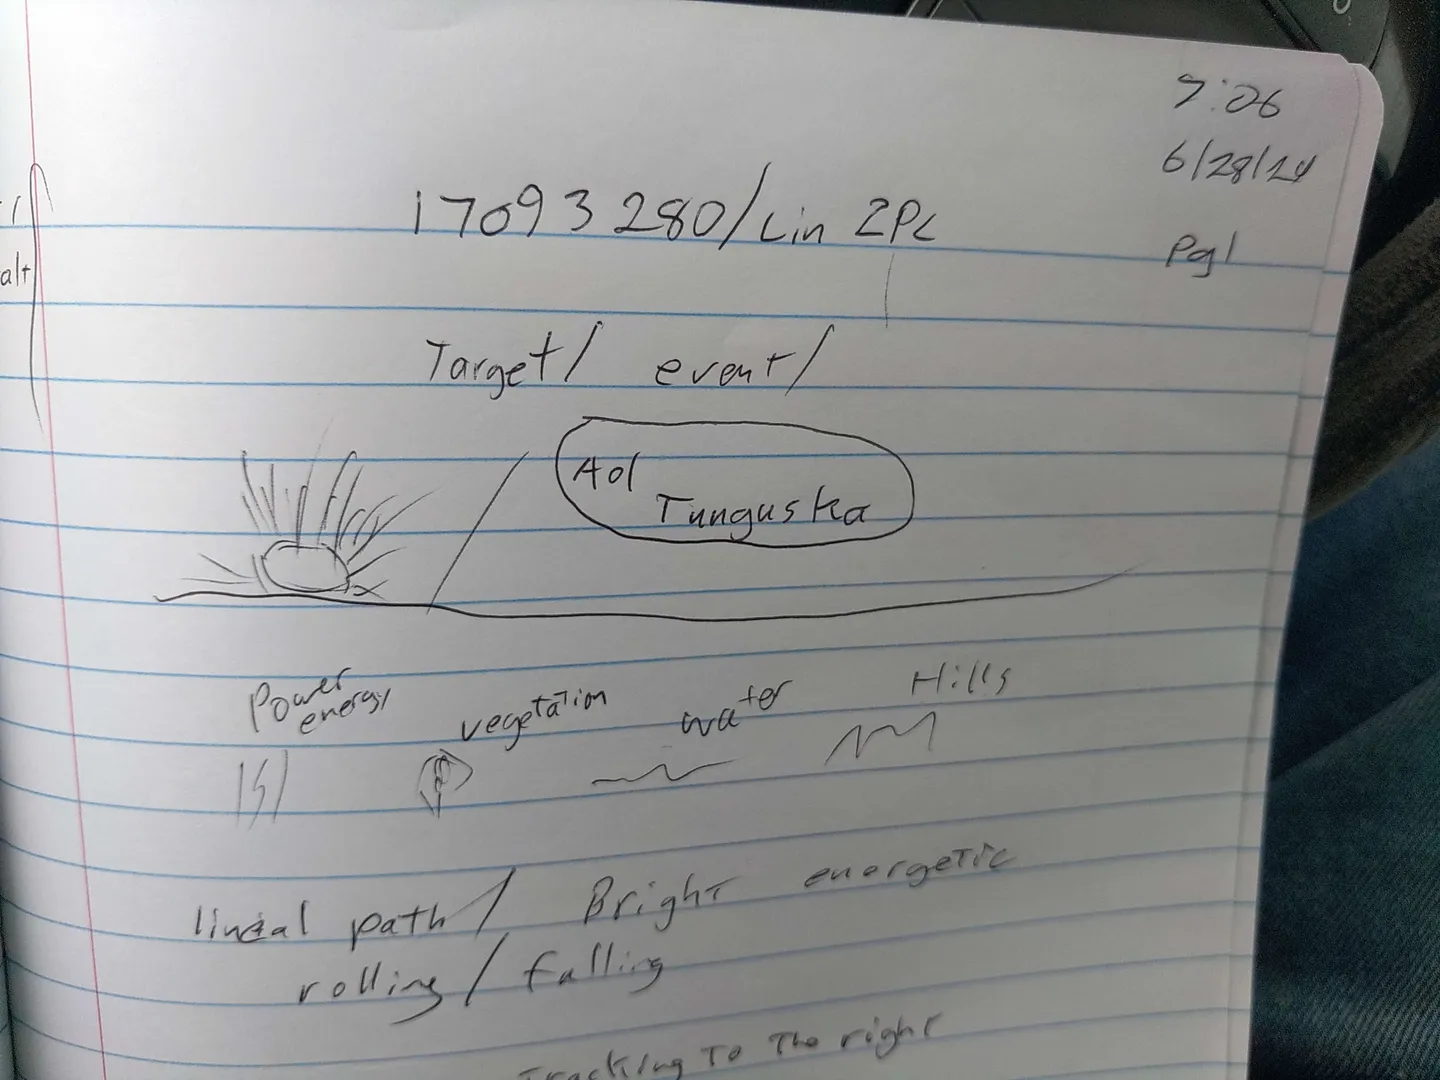 7:06
6/28/24
Pg 1
17093280/Lin 2PC
alt
Target/ event/
Aol
Tunguska
Power
energy
vegetation
water
Hills
lineal path/ Bright energetic
rolling/falling
Tracking To The right